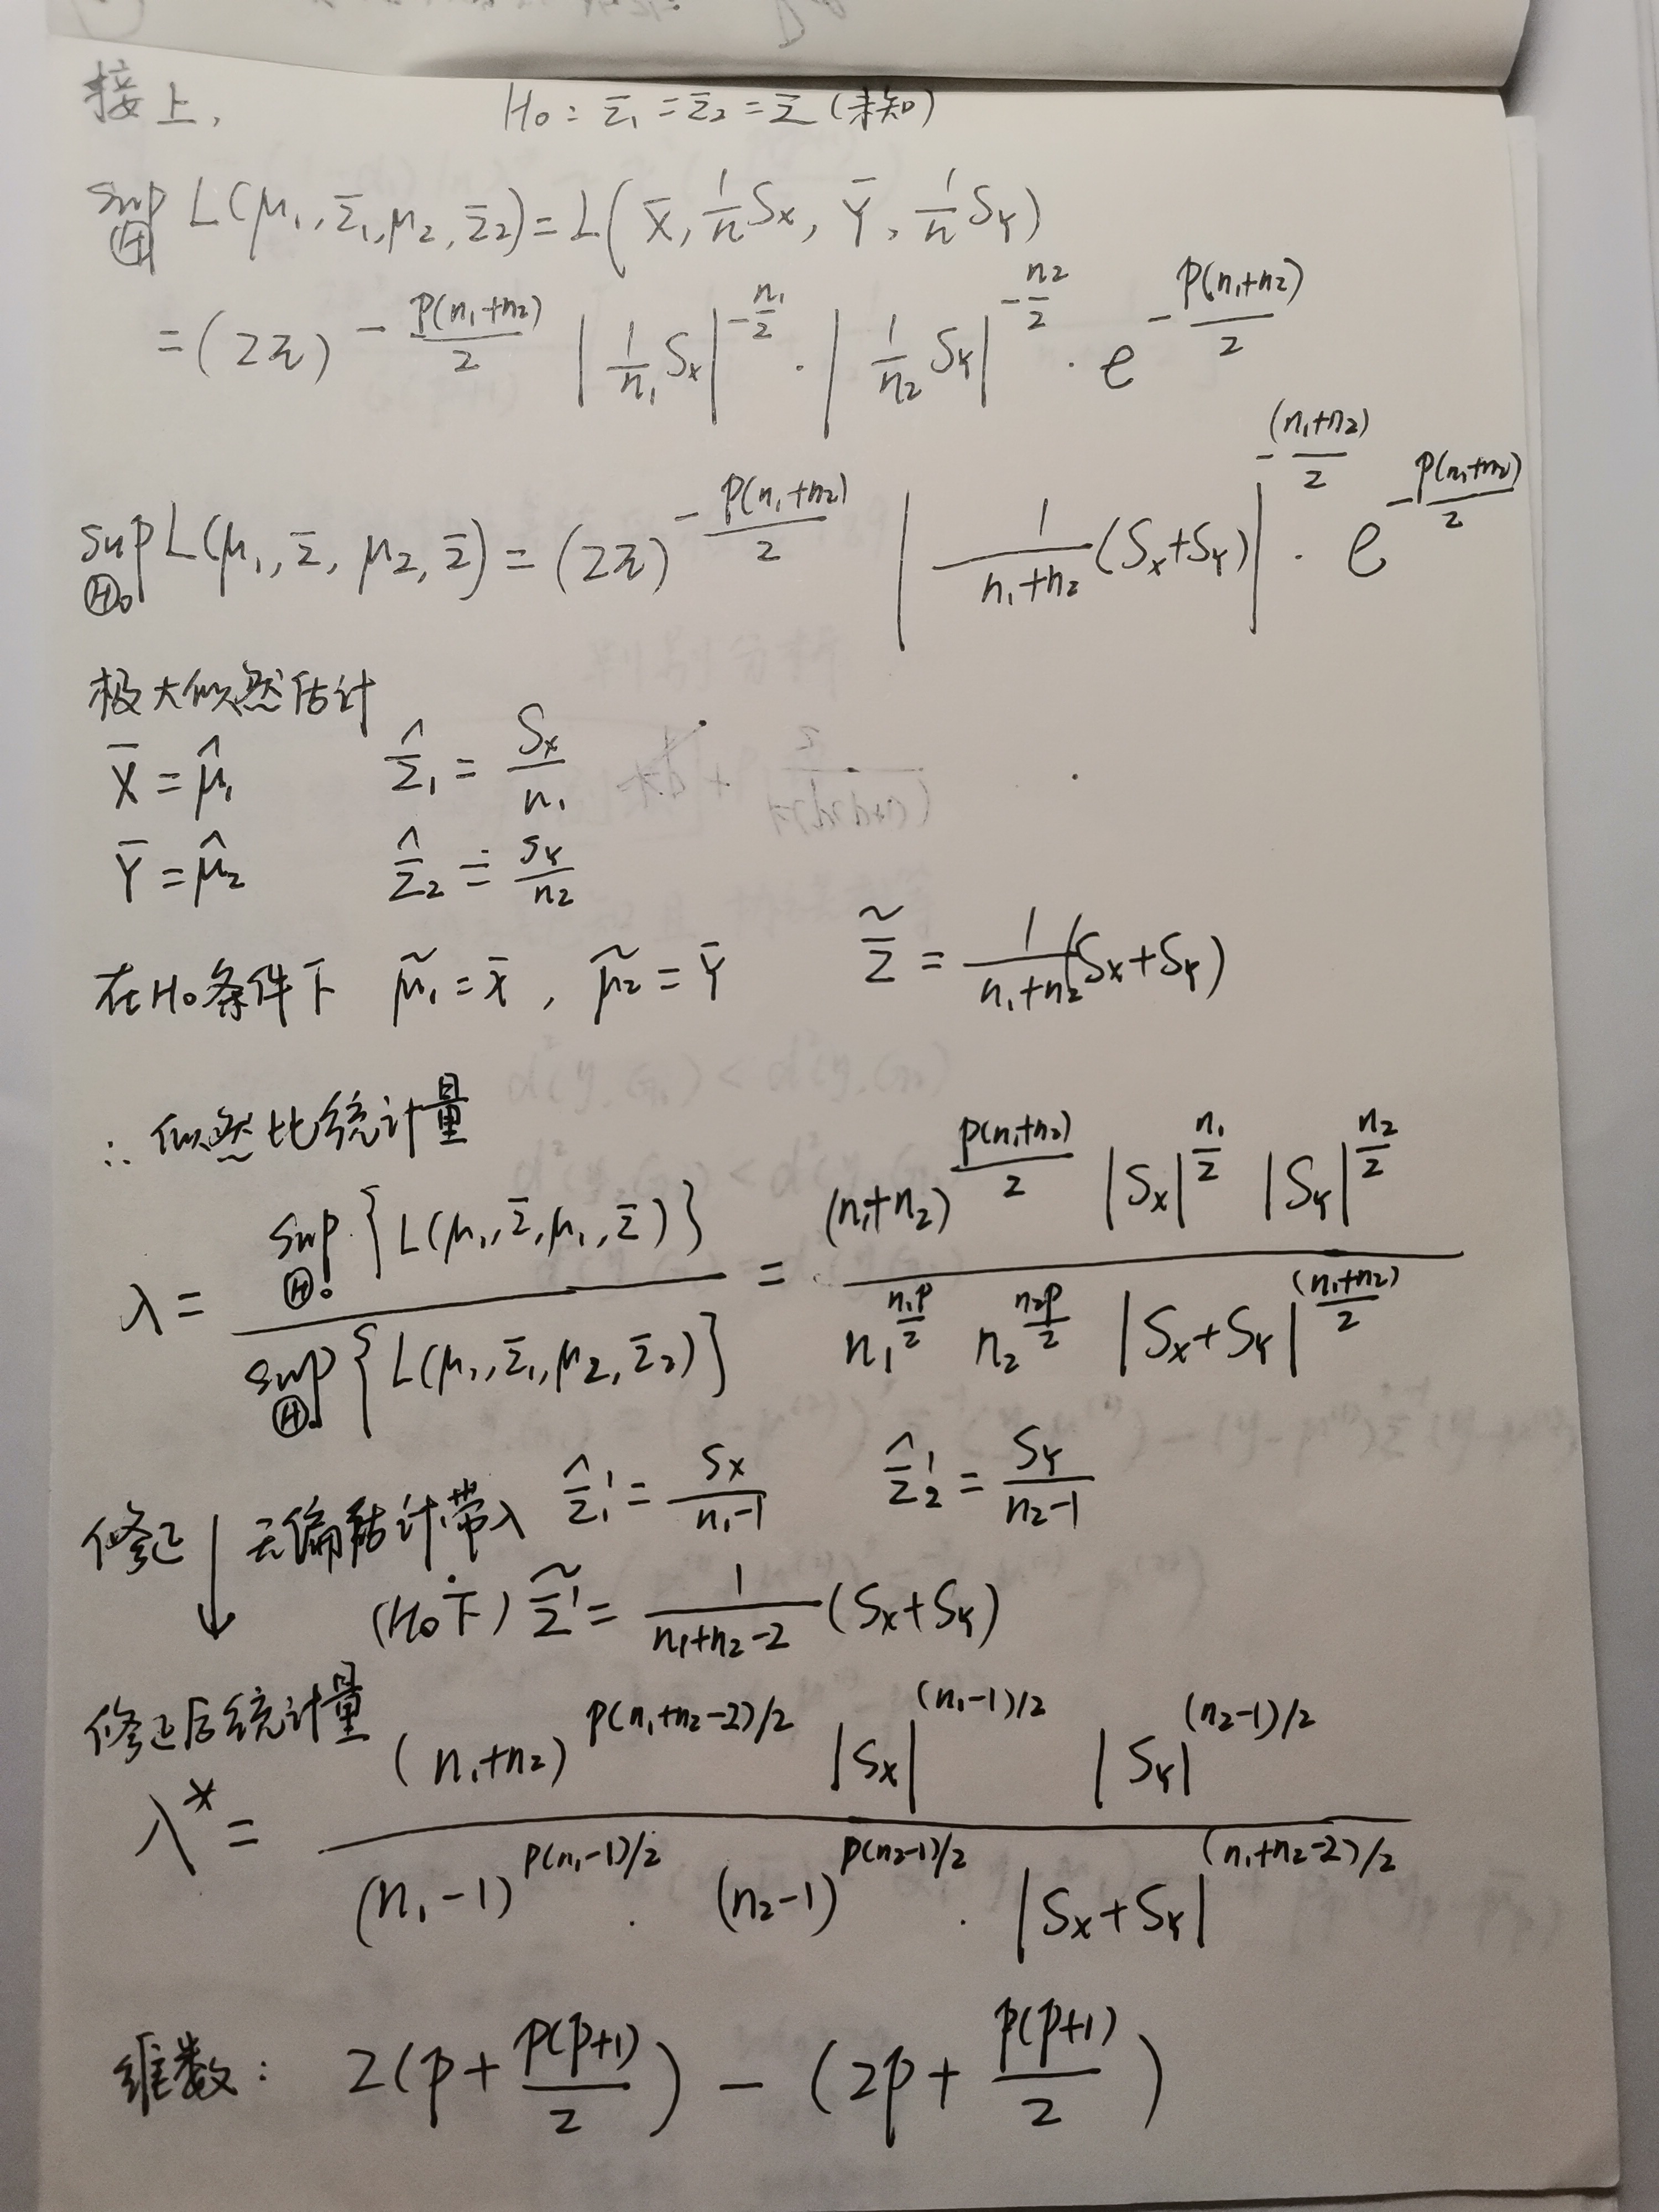 接上, H₀: Σ₁ = Σ₂ = Σ (未知)
sup_Ⓗ L(μ₁, Σ₁, μ₂, Σ₂) = L(X̄, 1/n Sx, Ȳ, 1/n S_Y)
= (2π)^{-p(n₁+n₂)/2} |1/n₁ Sx|^{-n₁/2} · |1/n₂ S_Y|^{-n₂/2} · e^{-p(n₁+n₂)/2}
sup_{Ⓗ₀} L(μ₁, Σ, μ₂, Σ) = (2π)^{-p(n₁+n₂)/2} |1/(n₁+n₂) (Sx+S_Y)|^{-(n₁+n₂)/2} · e^{-p(n₁+n₂)/2}
极大似然估计
X̄ = μ̂₁ Σ̂₁ = Sx/n₁
Ȳ = μ̂₂ Σ̂₂ = S_Y/n₂
在H₀条件下 μ̃₁ = X̄, μ̃₂ = Ȳ Σ̃ = 1/(n₁+n₂) (Sx+S_Y)
∴ 似然比统计量
λ = sup_{Ⓗ₀} {L(μ₁, Σ, μ₁, Σ)} / sup_Ⓗ {L(μ₁, Σ₁, μ₂, Σ₂)} = (n₁+n₂)^{p(n₁+n₂)/2} |Sx|^{n₁/2} |S_Y|^{n₂/2} / n₁^{n₁p/2} n₂^{n₂p/2} |Sx+S_Y|^{(n₁+n₂)/2}
修正 ↓ 无偏估计带入 Σ̂₁' = Sx/(n₁-1) Σ̂₂' = S_Y/(n₂-1)
(H₀下) Σ̃' = 1/(n₁+n₂-2) (Sx+S_Y)
修正后统计量
λ* = (n₁+n₂)^{p(n₁+n₂-2)/2} |Sx|^{(n₁-1)/2} |S_Y|^{(n₂-1)/2} / (n₁-1)^{p(n₁-1)/2} · (n₂-1)^{p(n₂-1)/2} · |Sx+S_Y|^{(n₁+n₂-2)/2}
维数: 2(p + p(p+1)/2) - (2p + p(p+1)/2)